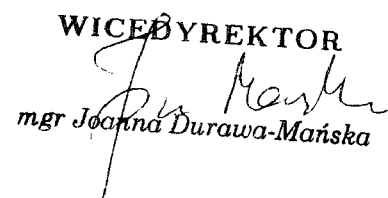 WICEDYREKTOR
mgr Joanna Durawa-Mańska